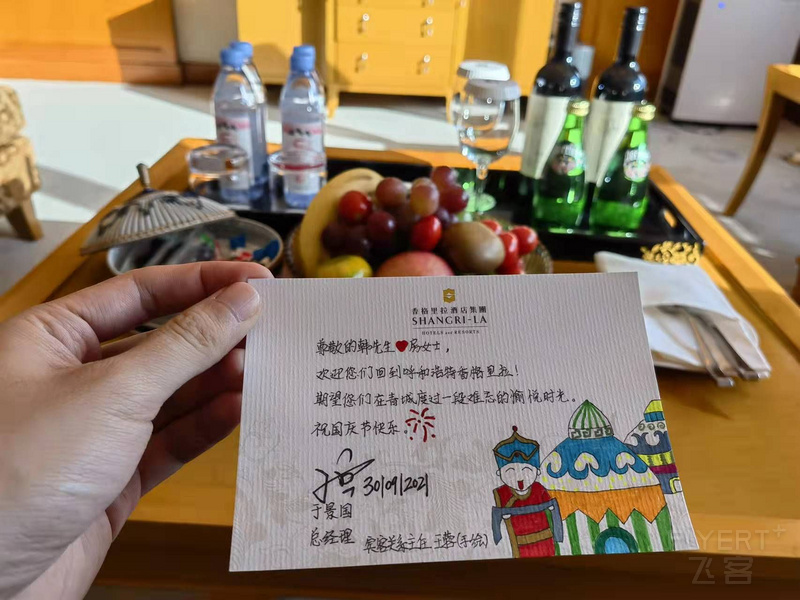 香格里拉酒店集團
SHANGRI-LA
HOTELS and RESORTS
尊敬的韩先生❤房女士，
欢迎您们回到呼和浩特香格里拉！
期望您们在青城度过一段难忘的愉悦时光。
祝国庆节快乐
30/09/2021
于景国
总经理 宾客关系主任 王蓉(手绘)
FLYERT+
飞客